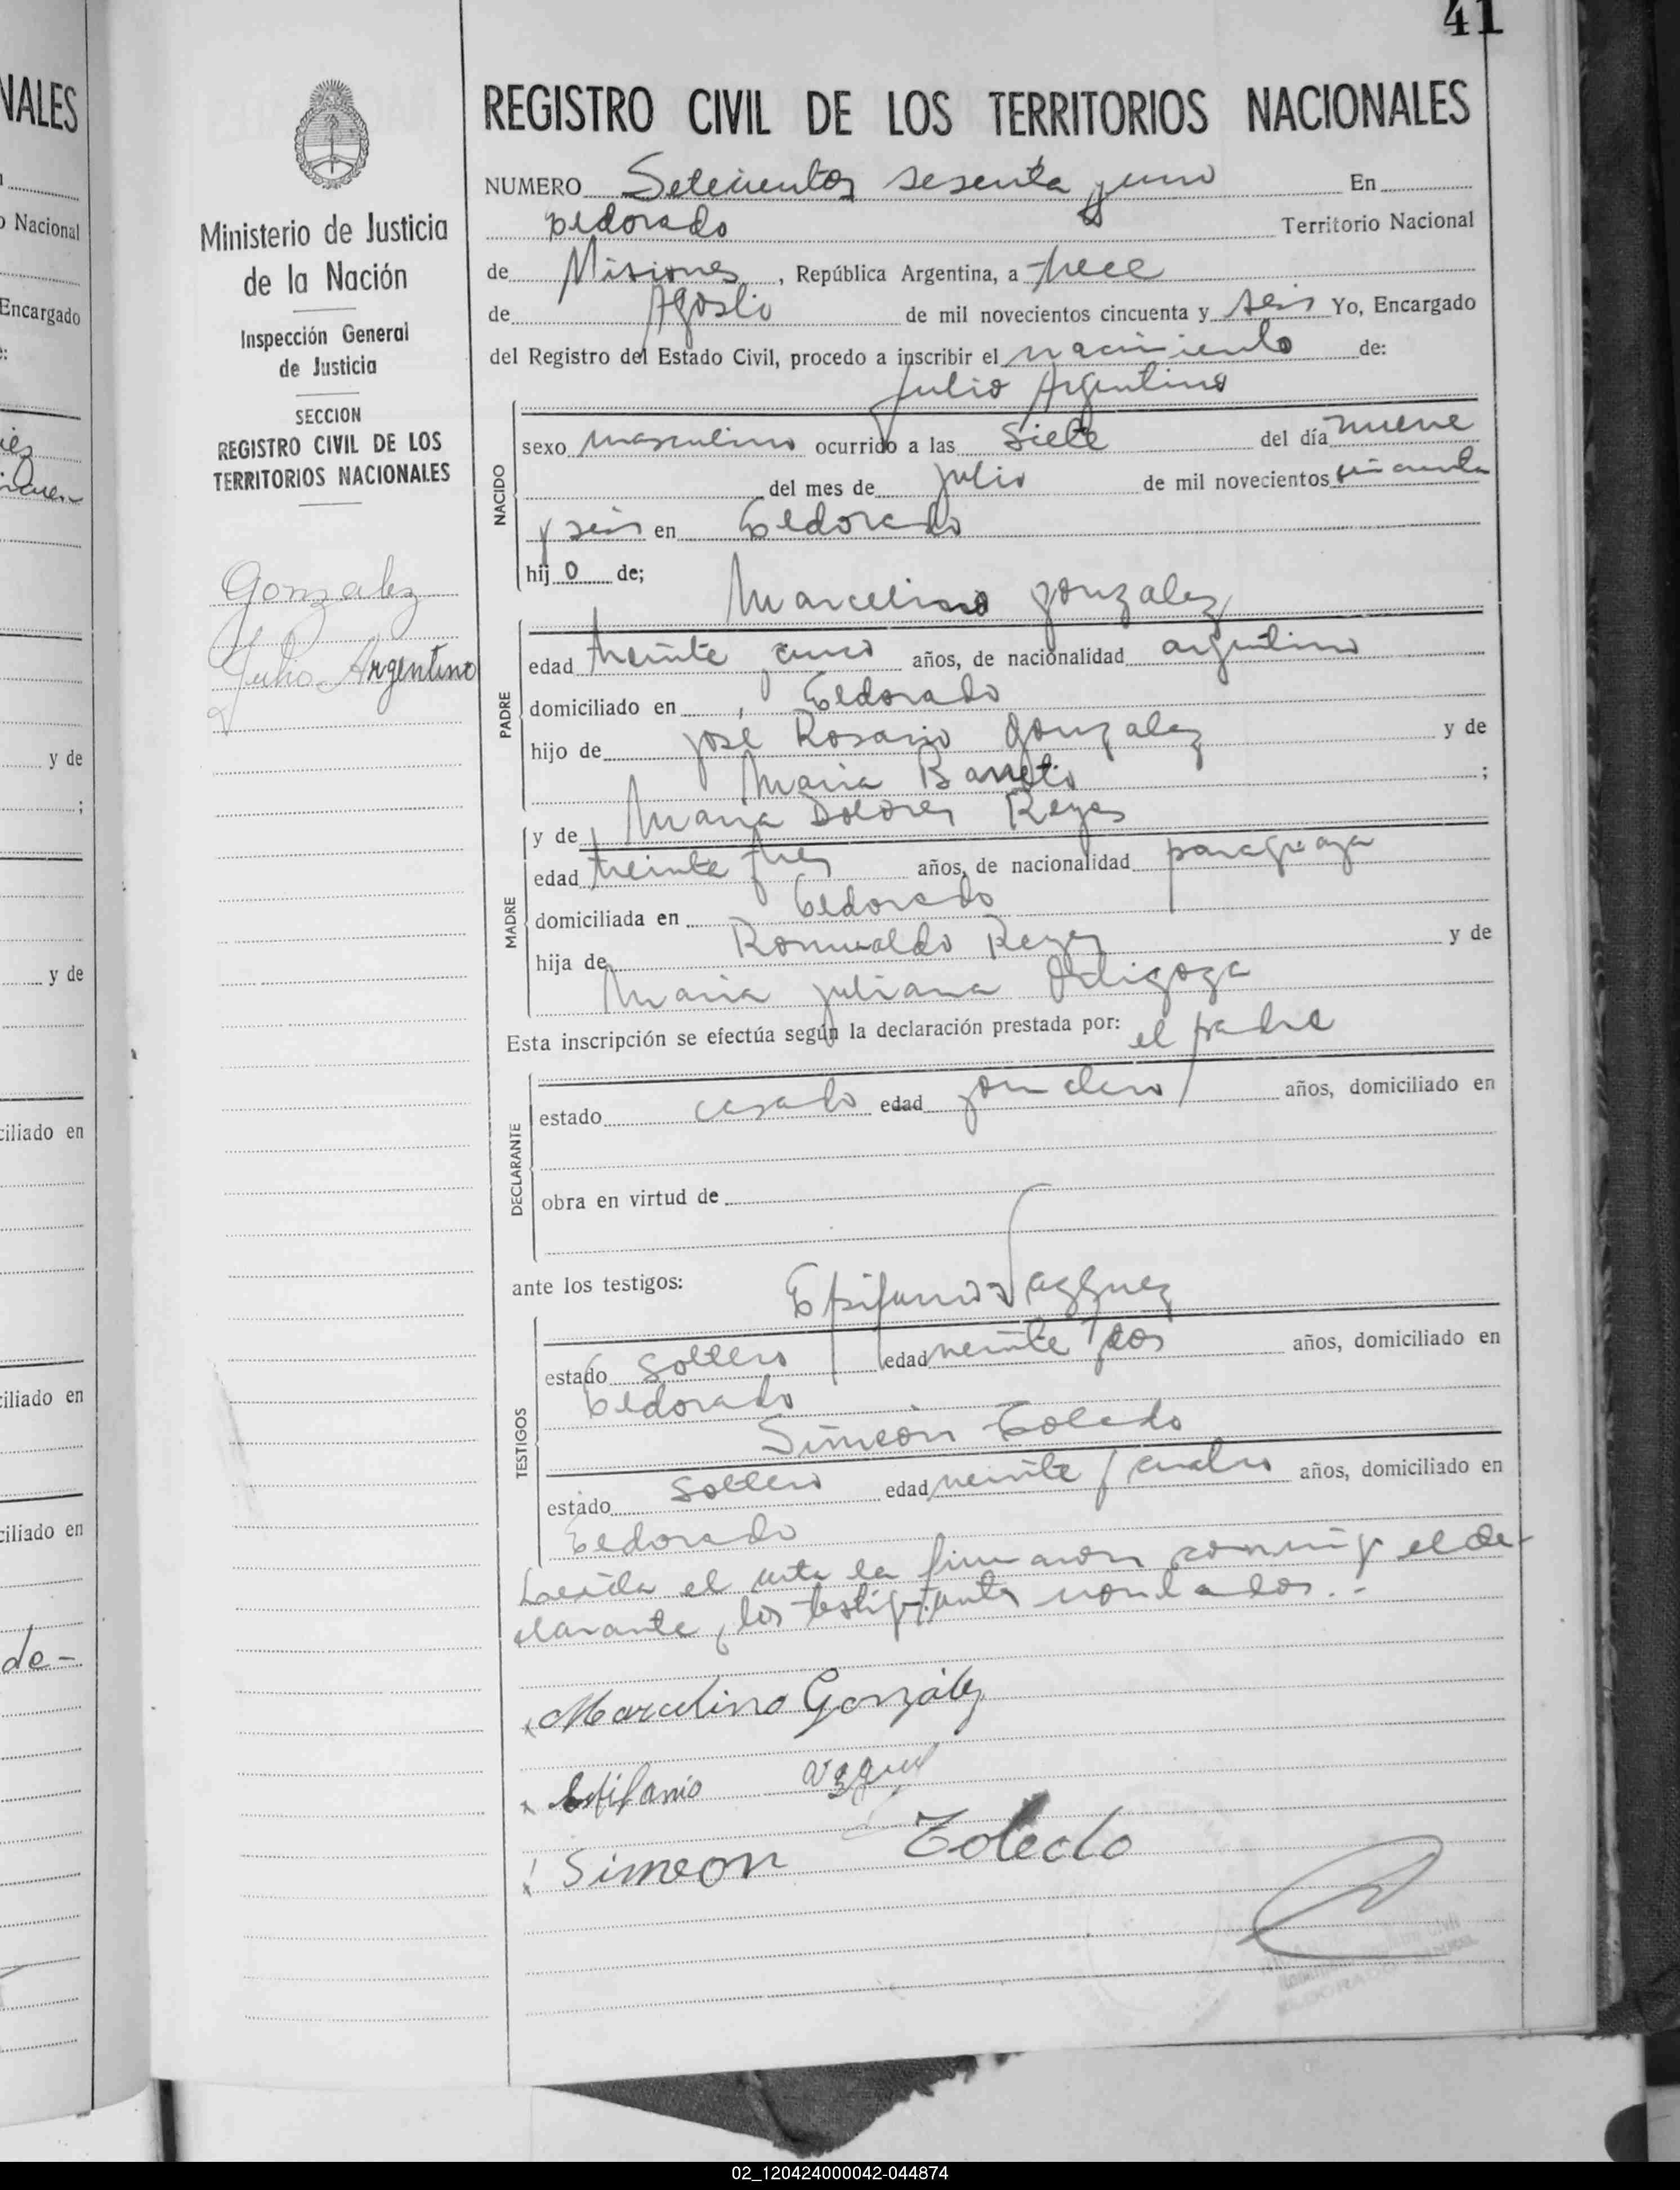 41
NALES
o Nacional
Encargado
y de
;
y de
ciliado en
ciliado en
ciliado en
de-
Ministerio de Justicia
de la Nación
Inspección General
de Justicia
SECCION
REGISTRO CIVIL DE LOS
TERRITORIOS NACIONALES
Gonzalez
Julio Argentino
REGISTRO CIVIL DE LOS TERRITORIOS NACIONALES
NUMERO Setecientos sesenta y uno En
Eldorado Territorio Nacional
de Misiones, República Argentina, a trece
de Agosto de mil novecientos cincuenta y seis Yo, Encargado
del Registro del Estado Civil, procedo a inscribir el nacimiento de:
Julio Argentino
NACIDO
sexo masculino ocurrido a las siete del día nueve
del mes de julio de mil novecientos cincuenta
y seis en Eldorado
hijo de;
Marcelino Gonzalez
PADRE
edad treinte y cinco años, de nacionalidad argentino
domiciliado en Eldorado
hijo de José Rosario Gonzalez y de
Maria Barreto ;
y de Maria Dolores Reyes
MADRE
edad treinte y tres años, de nacionalidad paraguaya
domiciliada en Eldorado
hija de Romualdo Reyes y de
Maria Juliana Ortigoza
Esta inscripción se efectúa según la declaración prestada por: el padre
DECLARANTE
estado casado edad jornalero años, domiciliado en
obra en virtud de
ante los testigos: Epifanio Vazquez
TESTIGOS
estado soltero edad veinte y dos años, domiciliado en
Eldorado
Simeón Toledo
estado soltero edad veinte y cuatro años, domiciliado en
Eldorado
Leida el acta la firmaron conmigo el de-
clarante y los testigos
Marcelino González
Epifanio
Simeon Toledo
ELDORADO
02_120424000042-044874